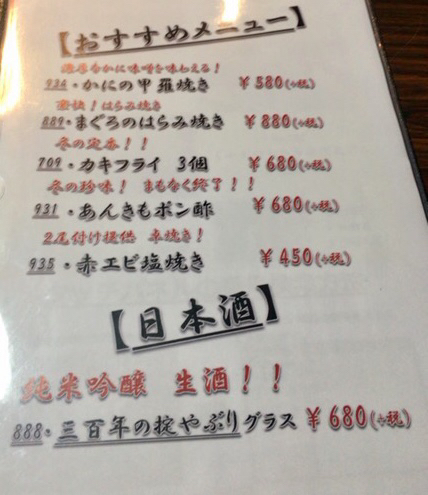 【おすすめメニュー】
濃厚なかに味噌を味わえる!
934・かにの甲羅焼き ¥580(+税)
豪快!はらみ焼き
889・まぐろのはらみ焼き ¥880(+税)
冬の定番!!
709・カキフライ 3個 ¥680(+税)
冬の珍味! まもなく終了!!
931・あんきもポン酢 ¥680(+税)
2尾付け提供 卓焼き!
935・赤エビ塩焼き ¥450(+税)
【日本酒】
純米吟醸 生酒!!
888・三百年の掟やぶりグラス ¥680(+税)